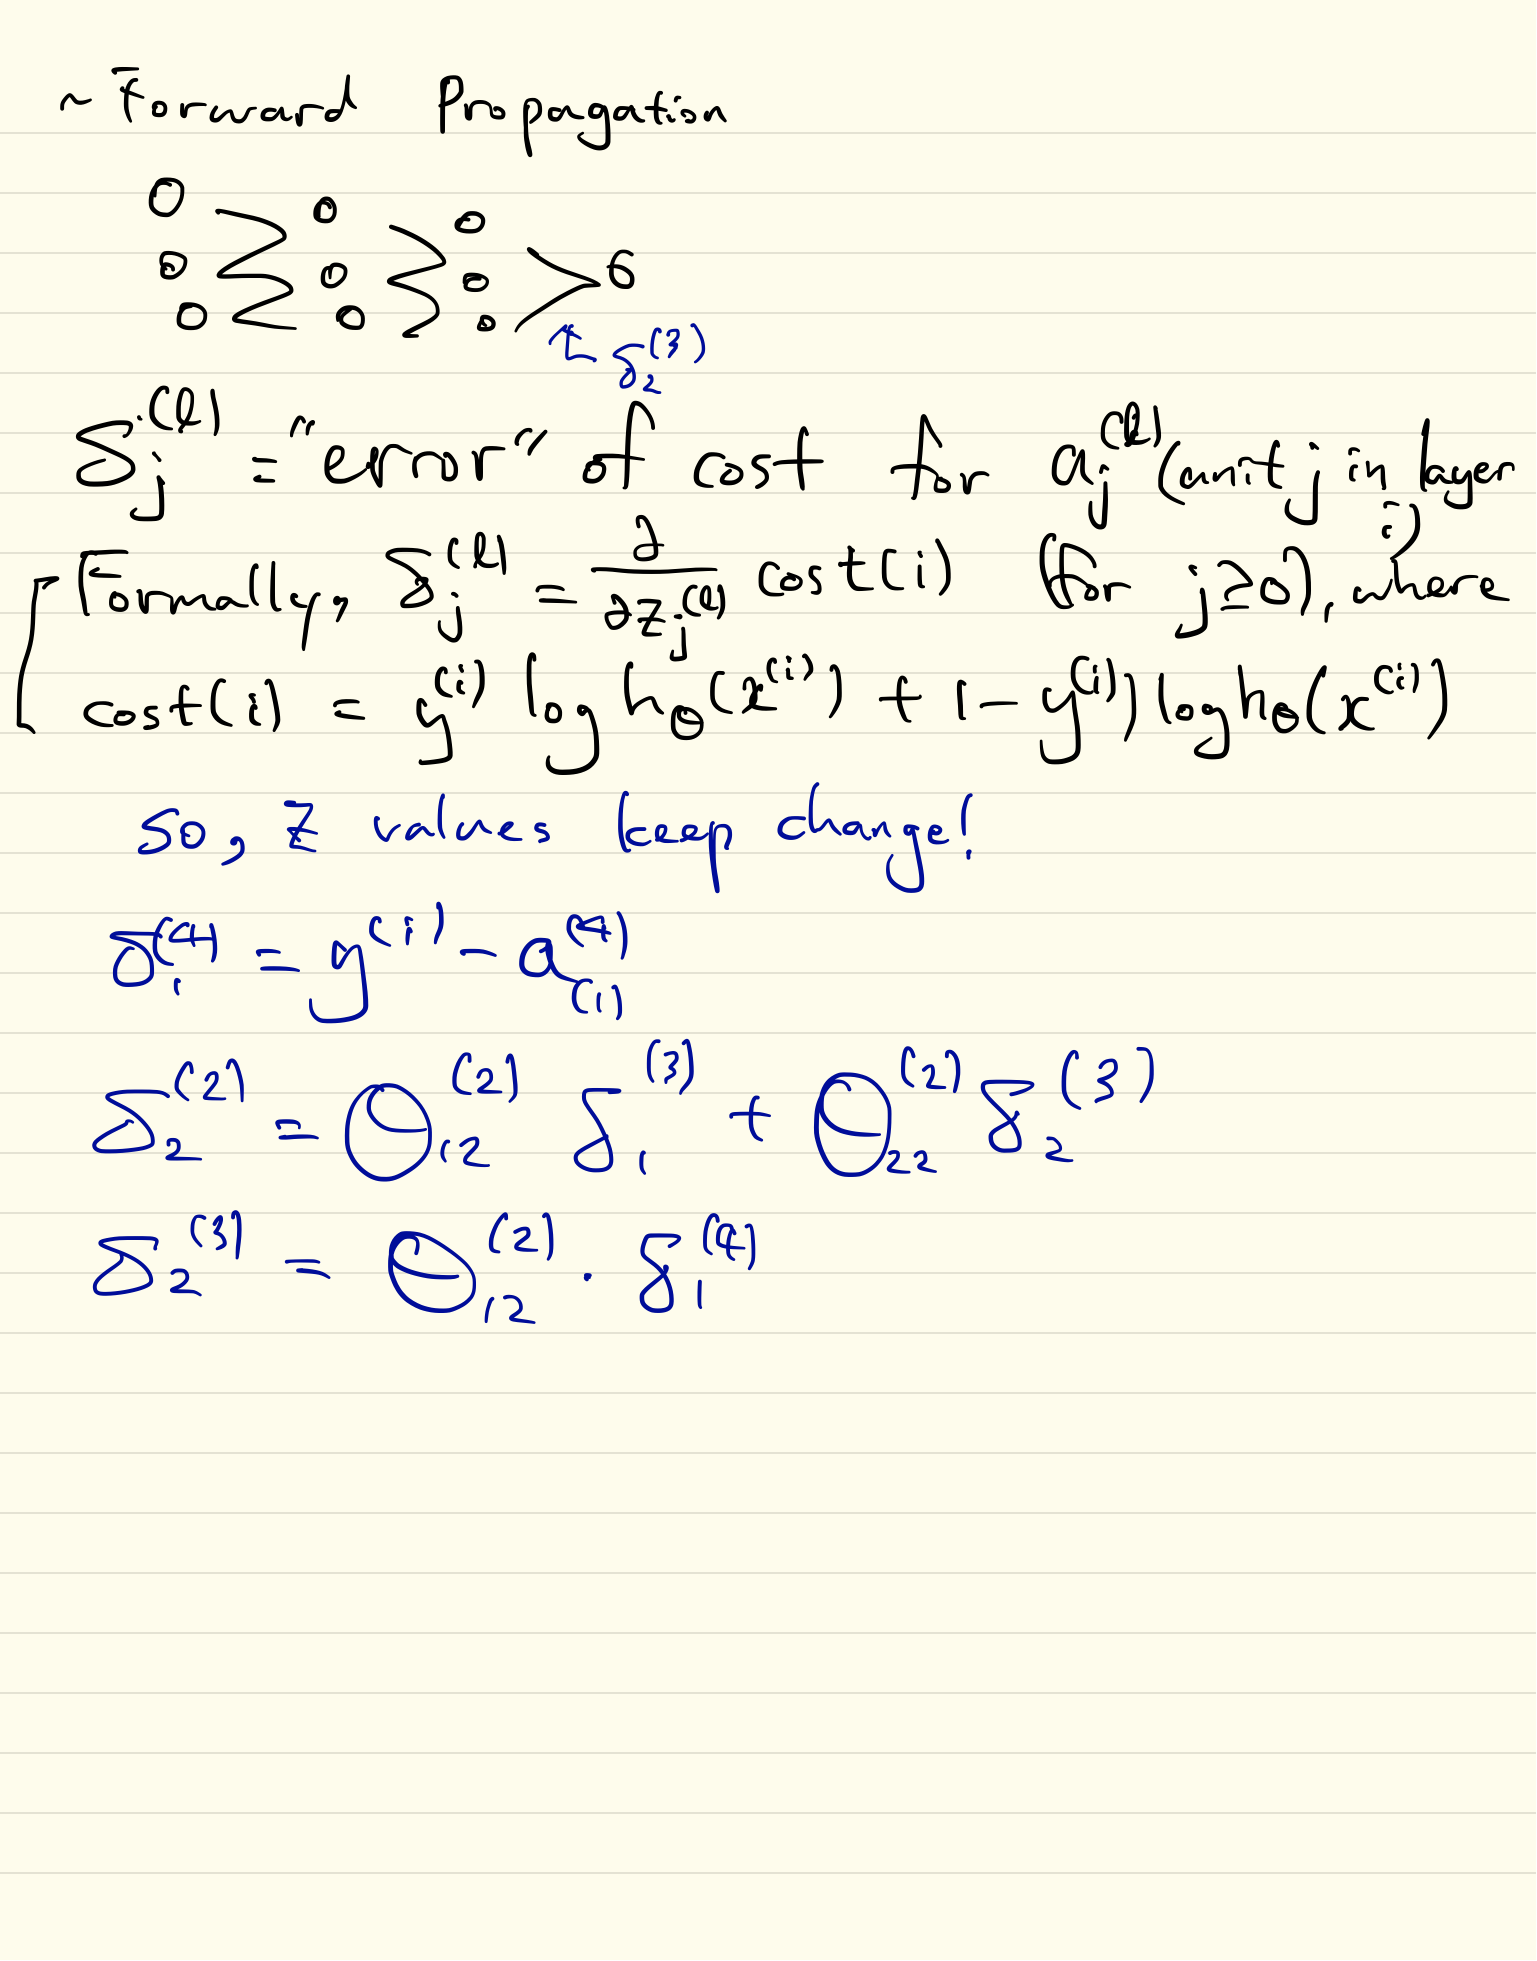 ~ Forward Propagation
δ₂⁽³⁾
δⱼ⁽ˡ⁾ = "error" of cost for aⱼ⁽ˡ⁾ (unit j in layer i)
Formally, δⱼ⁽ˡ⁾ = ∂/∂zⱼ⁽ˡ⁾ cost(i) (for j≥0), where
cost(i) = y⁽ⁱ⁾ log hθ(x⁽ⁱ⁾) + 1 - y⁽ⁱ⁾) log hθ(x⁽ⁱ⁾)
so, z values keep change!
δ₁⁽⁴⁾ = y⁽ⁱ⁾ - a₍₁₎⁽⁴⁾
δ₂⁽²⁾ = Θ₁₂⁽²⁾ δ₁⁽³⁾ + Θ₂₂⁽²⁾ δ₂⁽³⁾
δ₂⁽³⁾ = Θ₁₂⁽²⁾ · δ₁⁽⁴⁾